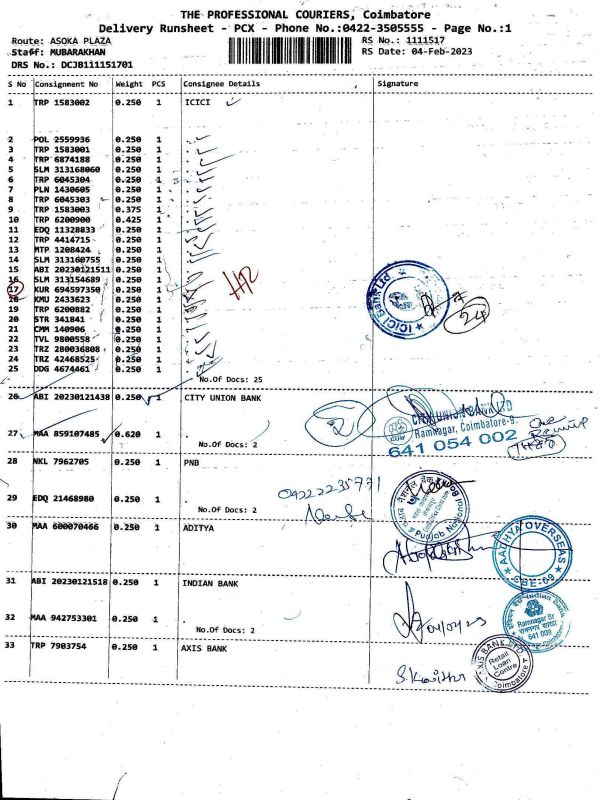 THE PROFESSIONAL COURIERS, Coimbatore
Delivery Runsheet - PCX - Phone No.:0422-3505555 - Page No.:1
Route: ASOKA PLAZA RS No.: 1111517
Staff: MUBARAKHAN RS Date: 04-Feb-2023
DRS No.: DCJB111151701
S No Consignment No Weight PCS Consignee Details Signature
1 TRP 1583002 0.250 1 ICICI
2 POL 2559936 0.250 1 .
3 TRP 1583001 0.250 1 .
4 TRP 6874188 0.250 1 .
5 SLM 313168060 0.250 1 .
6 TRP 6045304 0.250 1 .
7 PLN 1430605 0.250 1 .
8 TRP 6045303 0.250 1 .
9 TRP 1583003 0.375 1 .
10 TRP 6200900 0.425 1 .
11 EDQ 11328833 0.250 1 .
12 TRP 4414715 0.250 1 .
13 MTP 1208424 0.250 1 .
14 SLM 313160755 0.250 1 .
15 ABI 20230121511 0.250 1 .
16 SLM 313154689 0.250 1 .
17 KUR 694597350 0.250 1 .
18 KMU 2433623 0.250 1 .
19 TRP 6200882 0.250 1 .
20 STR 341841 0.250 1 .
21 CMM 140906 0.250 1 .
22 TVL 9800558 0.250 1 .
23 TRZ 280036808 0.250 1 .
24 TRZ 42468525 0.250 1 .
25 DDG 4674461 0.250 1 .
No.Of Docs: 25
ICICI Bank Ltd
24
26 ABI 20230121438 0.250 1 CITY UNION BANK
CITY UNION BANK LTD
Ramnagar, Coimbatore-9.
641 054 002
27 MAA 859107485 0.620 1 .
No.Of Docs: 2
28 NKL 7962705 0.250 1 PNB
04222235771
29 EDQ 21468980 0.250 1 .
No.Of Docs: 2
Punjab National Bank
30 MAA 600070466 0.250 1 ADITYA
AADHYA OVERSEAS
CBE-09
31 ABI 20230121518 0.250 1 INDIAN BANK
Indian Bank
Ramnagar Br
641 009
32 MAA 942753301 0.250 1 .
No.Of Docs: 2
04/02/23
33 TRP 7903754 0.250 1 AXIS BANK
AXIS BANK LTD
Retail
Loan
Centre
Coimbatore